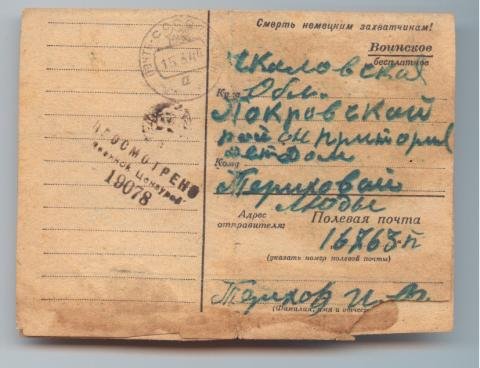 Смерть немецким захватчинам!
Воинское
бесплатное
Чкаловская
Куда
Обл.
Покровский
район
дет дом
Кому
Териховой
Любы
Адрес
отправителя:
Полевая почта
16763-п
(указать номер полевой почты)
Терихов И. В.
(Фамилия, имя и отчество)
ПРОСМОТРЕНО
Военной Цензурой
19078